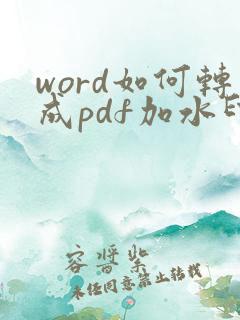 word如何轉
成pdf加水印
容器紫
未经同意禁止转载